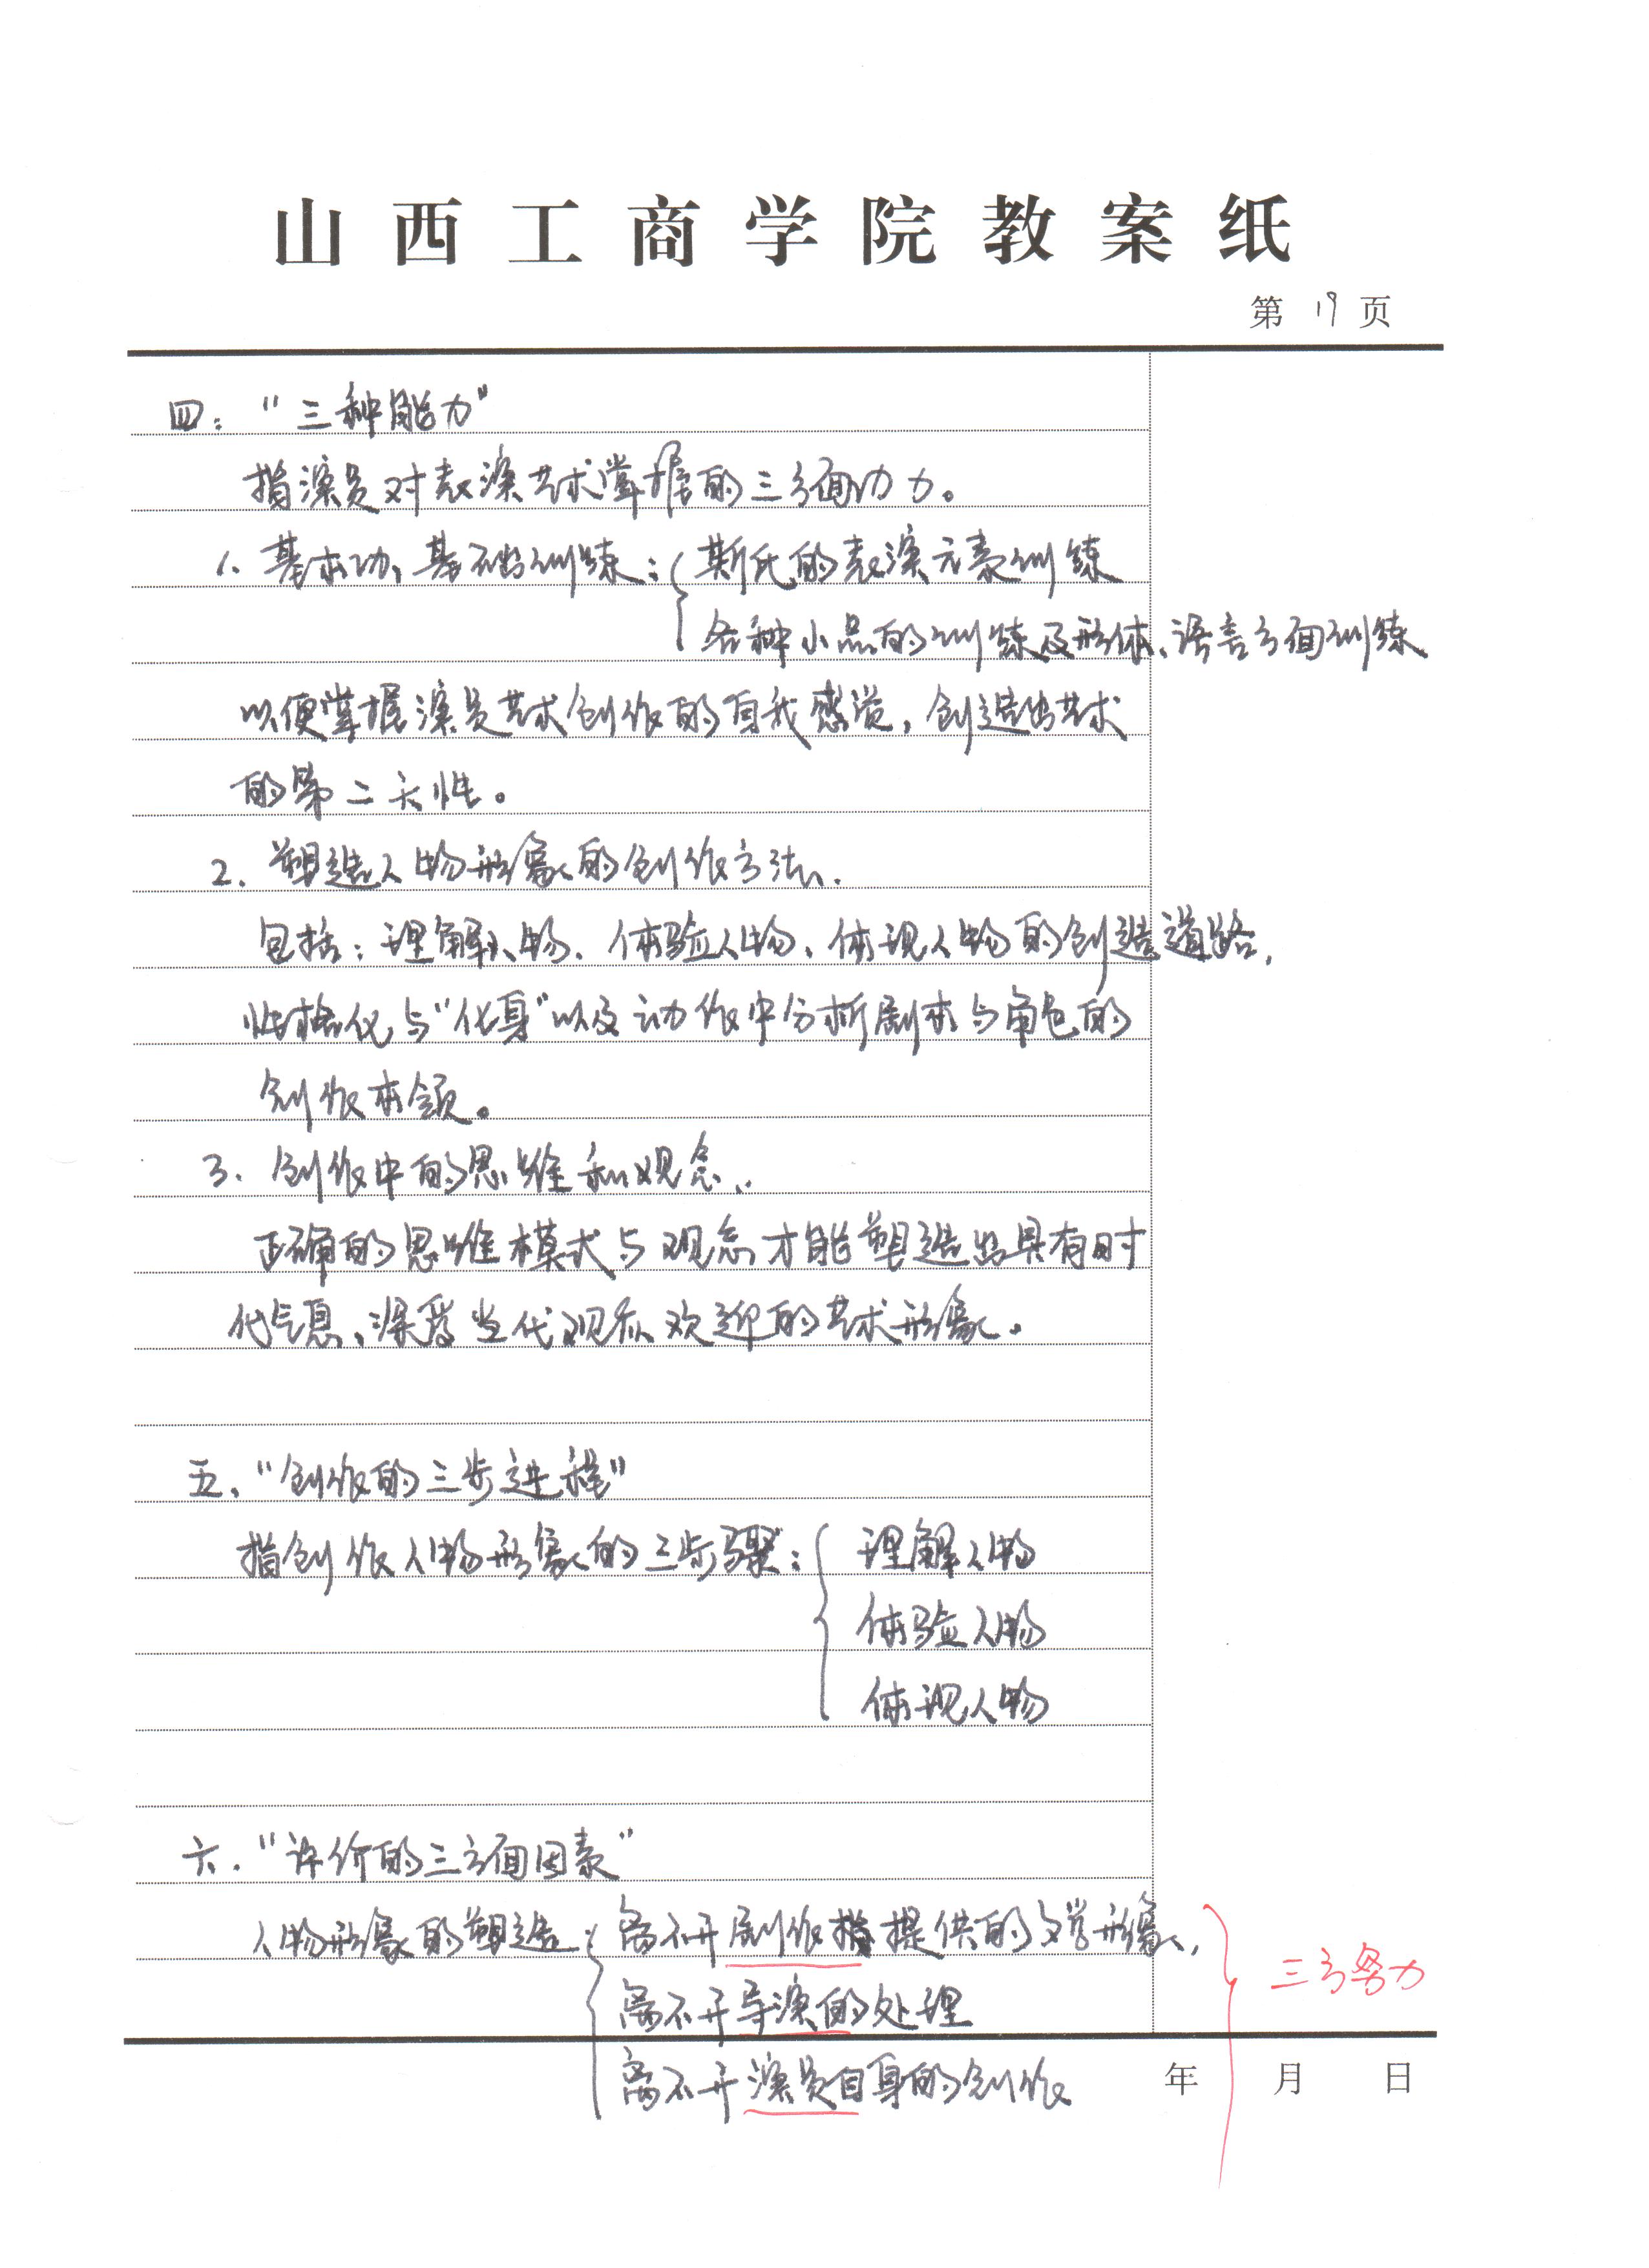 山西工商学院教案纸
第 19 页
四：“三种能力”
指演员对表演艺术掌握的三方面功力。
1、基本功、基础训练：{斯氏的表演元素训练
各种小品的训练及形体、语言方面训练
以便掌握演员艺术创作的自我感觉，创造出艺术
的第二天性。
2. 塑造人物形象的创作方法.
包括：理解人物、体验人物、体现人物的创造道路，
性格化与“化身”以及动作中分析剧本与角色的
创作本领。
3. 创作中的思维和观念.
正确的思维模式与观念才能塑造出具有时
代气息、深受当代观众欢迎的艺术形象。
五、“创作的三步进程”
指创作人物形象的三步骤：{理解人物
体验人物
体现人物
六.“评价的三方面因素”
人物形象的塑造：{离不开剧作提供的文学形象，
离不开导演的处理
三方努力
离不开演员自身的创作
年 月 日